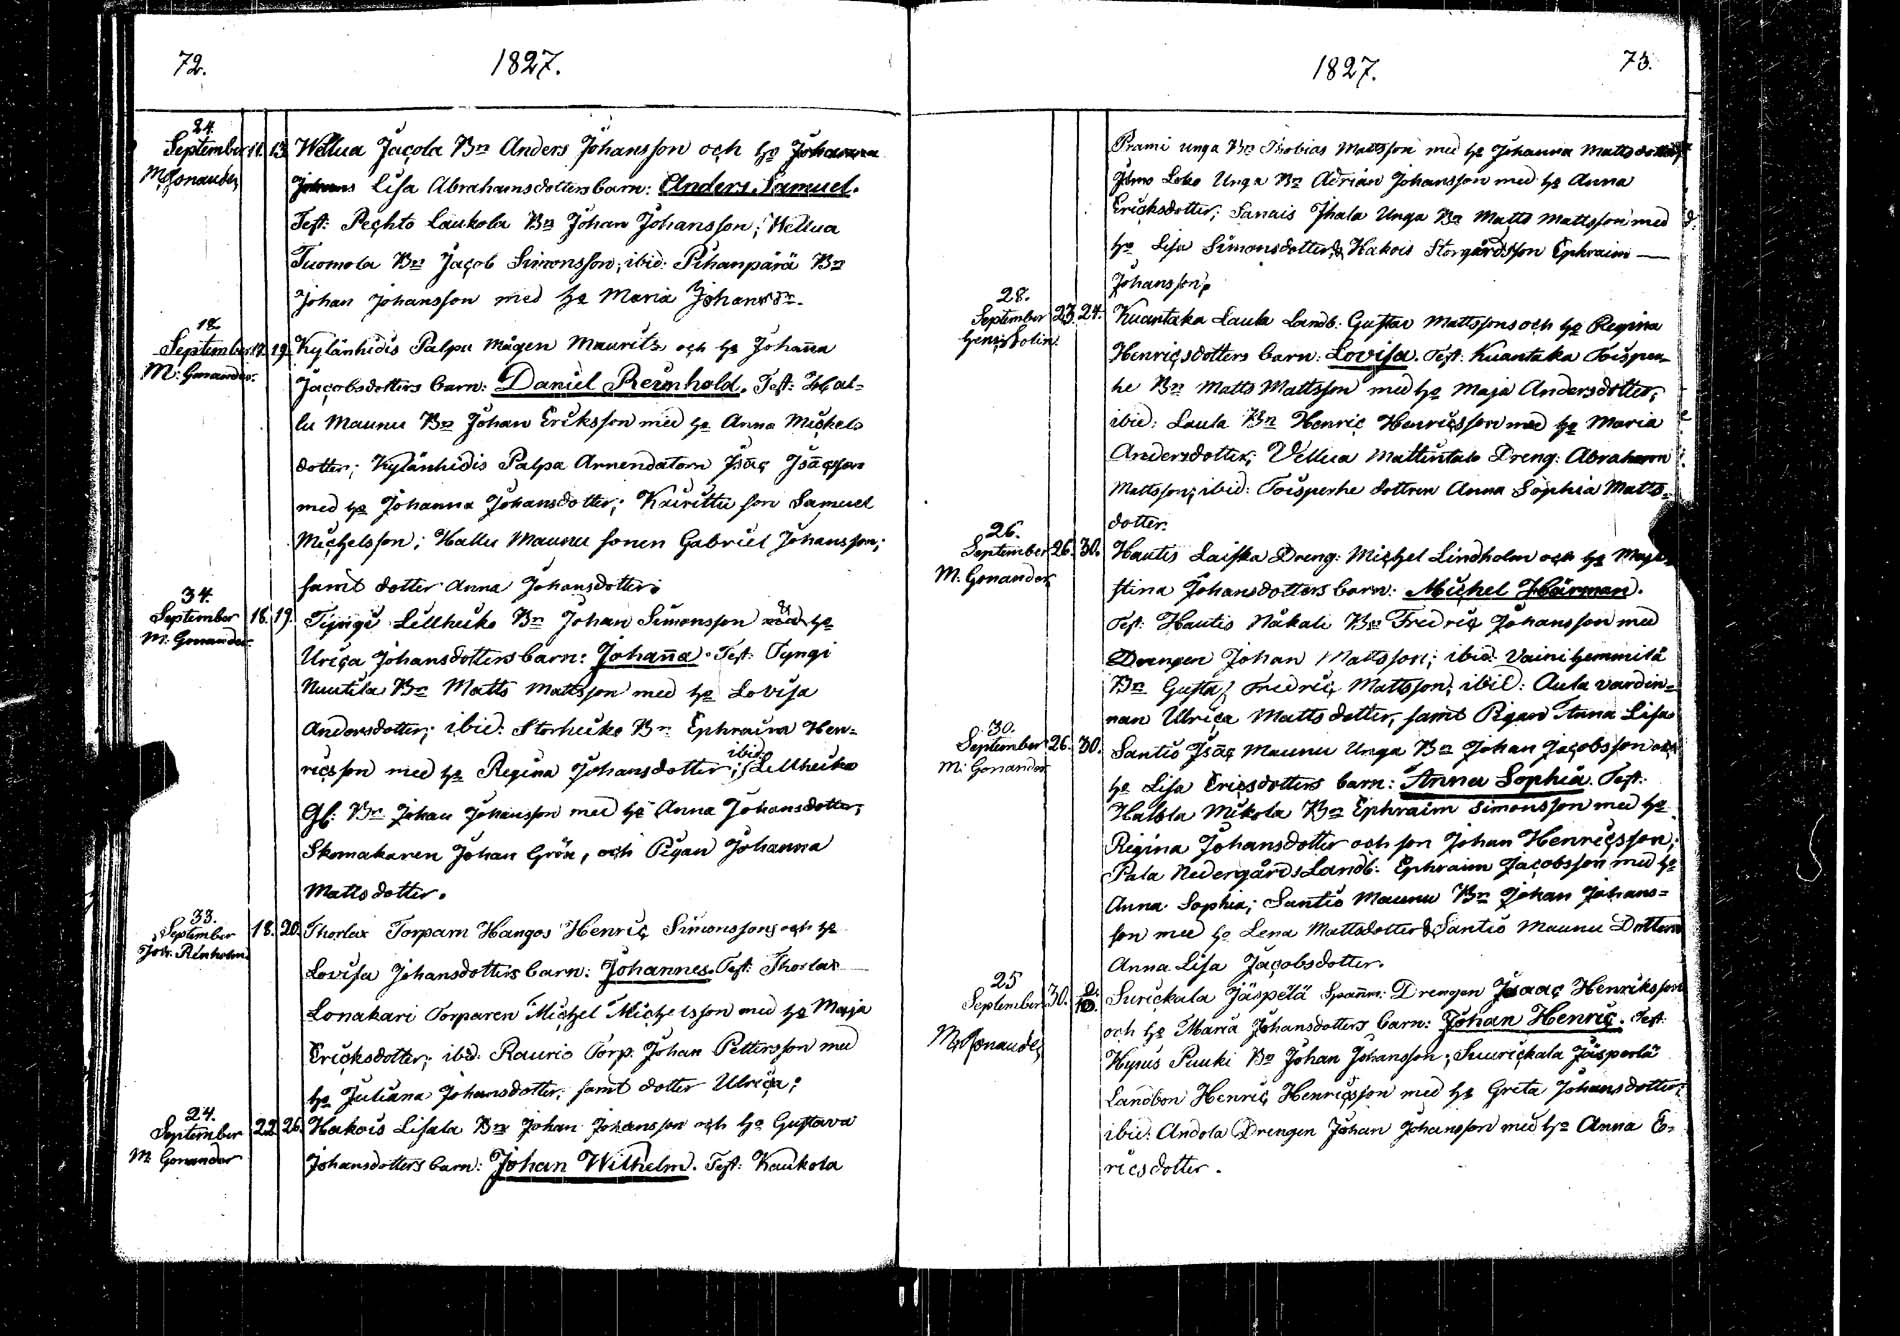 72.
1827.
24.
September 11. 13. Wellua Jacola Bn Anders Johansson och ho Johanna
M. Gonander
Johans Lisa Abrahamsdotters barn: Anders Samuel.
Test: Pechto Laukola Bn Johan Johansson; Wellua
Tuomola Bn Jacob Simonsson; ibid: Pihanpärä Bn
Johan Johansson med ho Maria Johansdr.
18.
September 17. 19. Kylänhidis Palpa Mågen Maurits och ho Johanna
M: Gonander.
Jacobsdotters barn: Daniel Reinhold. Test: Hal-
lu Maunu Bn Johan Eriksson med ho Anna Mickels
dotter; Kylänhidis Palpa Arrendatorn Isaac Isacsson
med ho Johanna Johansdotter; son Samuel
Michelsson; Hallu Maunu sonen Gabriel Johansson;
samt dotter Anna Johansdotter.
34.
September 16. 19. Tyngi Lillheiko Bn Johan Simonsson och ho
M. Gonander
Ulrica Johansdotters barn: Johanna. Test: Tyngi
Nuutila Bn Matts Mattsson med ho Lovisa
Andersdotter; ibid: Storheiko Bn Ephraim Hen-
ricsson med ho Regina Johansdotter; ibid: Lillheiko
Gl: Bn Johan Johansson med ho Anna Johansdotter;
Skomakaren Johan Grön, och Pigan Johanna
Mattsdotter.
33.
September 18. 20. Thorlax Torparn Hangos Henric Simonssons och ho
Joh. Rénholm
Lovisa Johansdotters barn: Johannes. Test: Thorlax
Lonakari Torparen Michel Michelsson med ho Maja
Ericksdotter; ibd. Raurio Torp. Johan Pettersson med
ho Juliana Johansdotter, samt dotter Ulrica;
24.
September 22. 26. Hakois Lisala Bn Johan Johansson och ho Gustava
M: Gonander
Johansdotters barn: Johan Wilhelm. Test: Kaukola
1827.
73.
Prami unga Bn Thobias Mattsson med ho Johanna Mattsdotter
Leko Unga Bn Adrian Johansson med ho Anna
Ericksdotter; Sanais Jhala Unga Bn Matts Mattsson med
ho Lisa Simonsdotter, & Hakois Storgårdsson Ephraim
Johansson.
28.
September 23. 24. Kuantaka Laula Landb: Gustav Mattssons och ho Regina
Henr: Solin.
Henricsdotters barn: Lovisa. Test: Kuantaka Toisper-
he Bn Matts Mattsson med ho Maja Andersdotter;
ibid: Laula Bn Henric Henricsson med ho Maria
Andersdotter; Vellua Mattintalo Dreng: Abraham
Mattsson; ibid: Toisperhe dottren Anna Sophia Matts-
dotter.
26.
September 26. 30. Hautis Laiska Dreng: Michel Lindholm och ho Maja
M. Gonander
stina Johansdotters barn: Michel Härman.
Test: Hautis Nåkali Bn Fredric Johansson med
Drengen Johan Mattsson; ibid: Vainihemmilä
Bn Gustaf Fredric Mattsson, ibid: Aula värdin-
nan Ulrica Mattsdotter, samt Pigan Anna Lisa
30.
September 26. 30. Santio Isac Maunu Unga Bn Johan Jacobsson och
M: Gonander
ho Lisa Ericsdotters barn: Anna Sophia. Test:
Halola Mikola Bn Ephraim Simonsson med ho
Regina Johansdotter och son Johan Henricsson;
Pala Nedergårds Landb: Ephraim Jacobsson med ho
Anna Sophia; Santio Maunu Bn Johan Johans-
son med ho Lena Mattsdotter & Santio Maunu Dottern
Anna Lisa Jacobsdotter.
25
September 30. Surickala Jäspelä Spanm: Drengen Isaac Henriksson
M. Gonander
och ho Maria Johansdotters barn: Johan Henric. Test:
Hysus Puuki Bn Johan Johansson; Suurickala Jäsperlä
Landbon Henric Henricsson med ho Greta Johansdotter;
ibid: Andola Drengen Johan Johansson med ho Anna E-
ricsdotter.